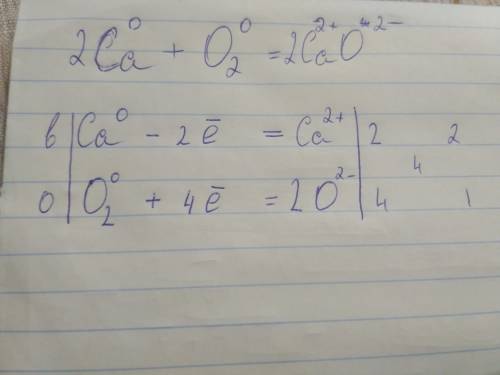 2Ca⁰ + O₂⁰ = 2Ca²⁺O²⁻
в | Ca⁰ - 2ē = Ca²⁺ | 2 2
4
о | O₂⁰ + 4ē = 2O²⁻ | 4 1